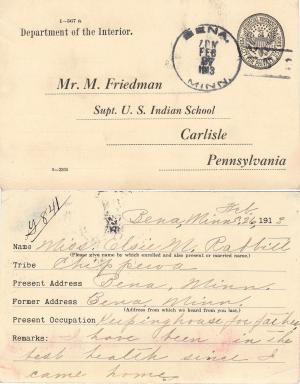 1—567 a
Department of the Interior.
BENA,
FEB
27
1913
MINN.
Mr. M. Friedman
Supt. U. S. Indian School
Carlisle
Pennsylvania
g 841
Feb.
Bena, Minn. 26, 1913
Name Miss Elsie M. Rabbitt
(Please give name by which enrolled and also present or married name.)
Tribe Chippewa
Present Address Bena, Minn.
Former Address Bena, Minn.
(Address from which we heard from you last.)
Present Occupation Keeping house for father
Remarks: I have been in the
best health since I
came home